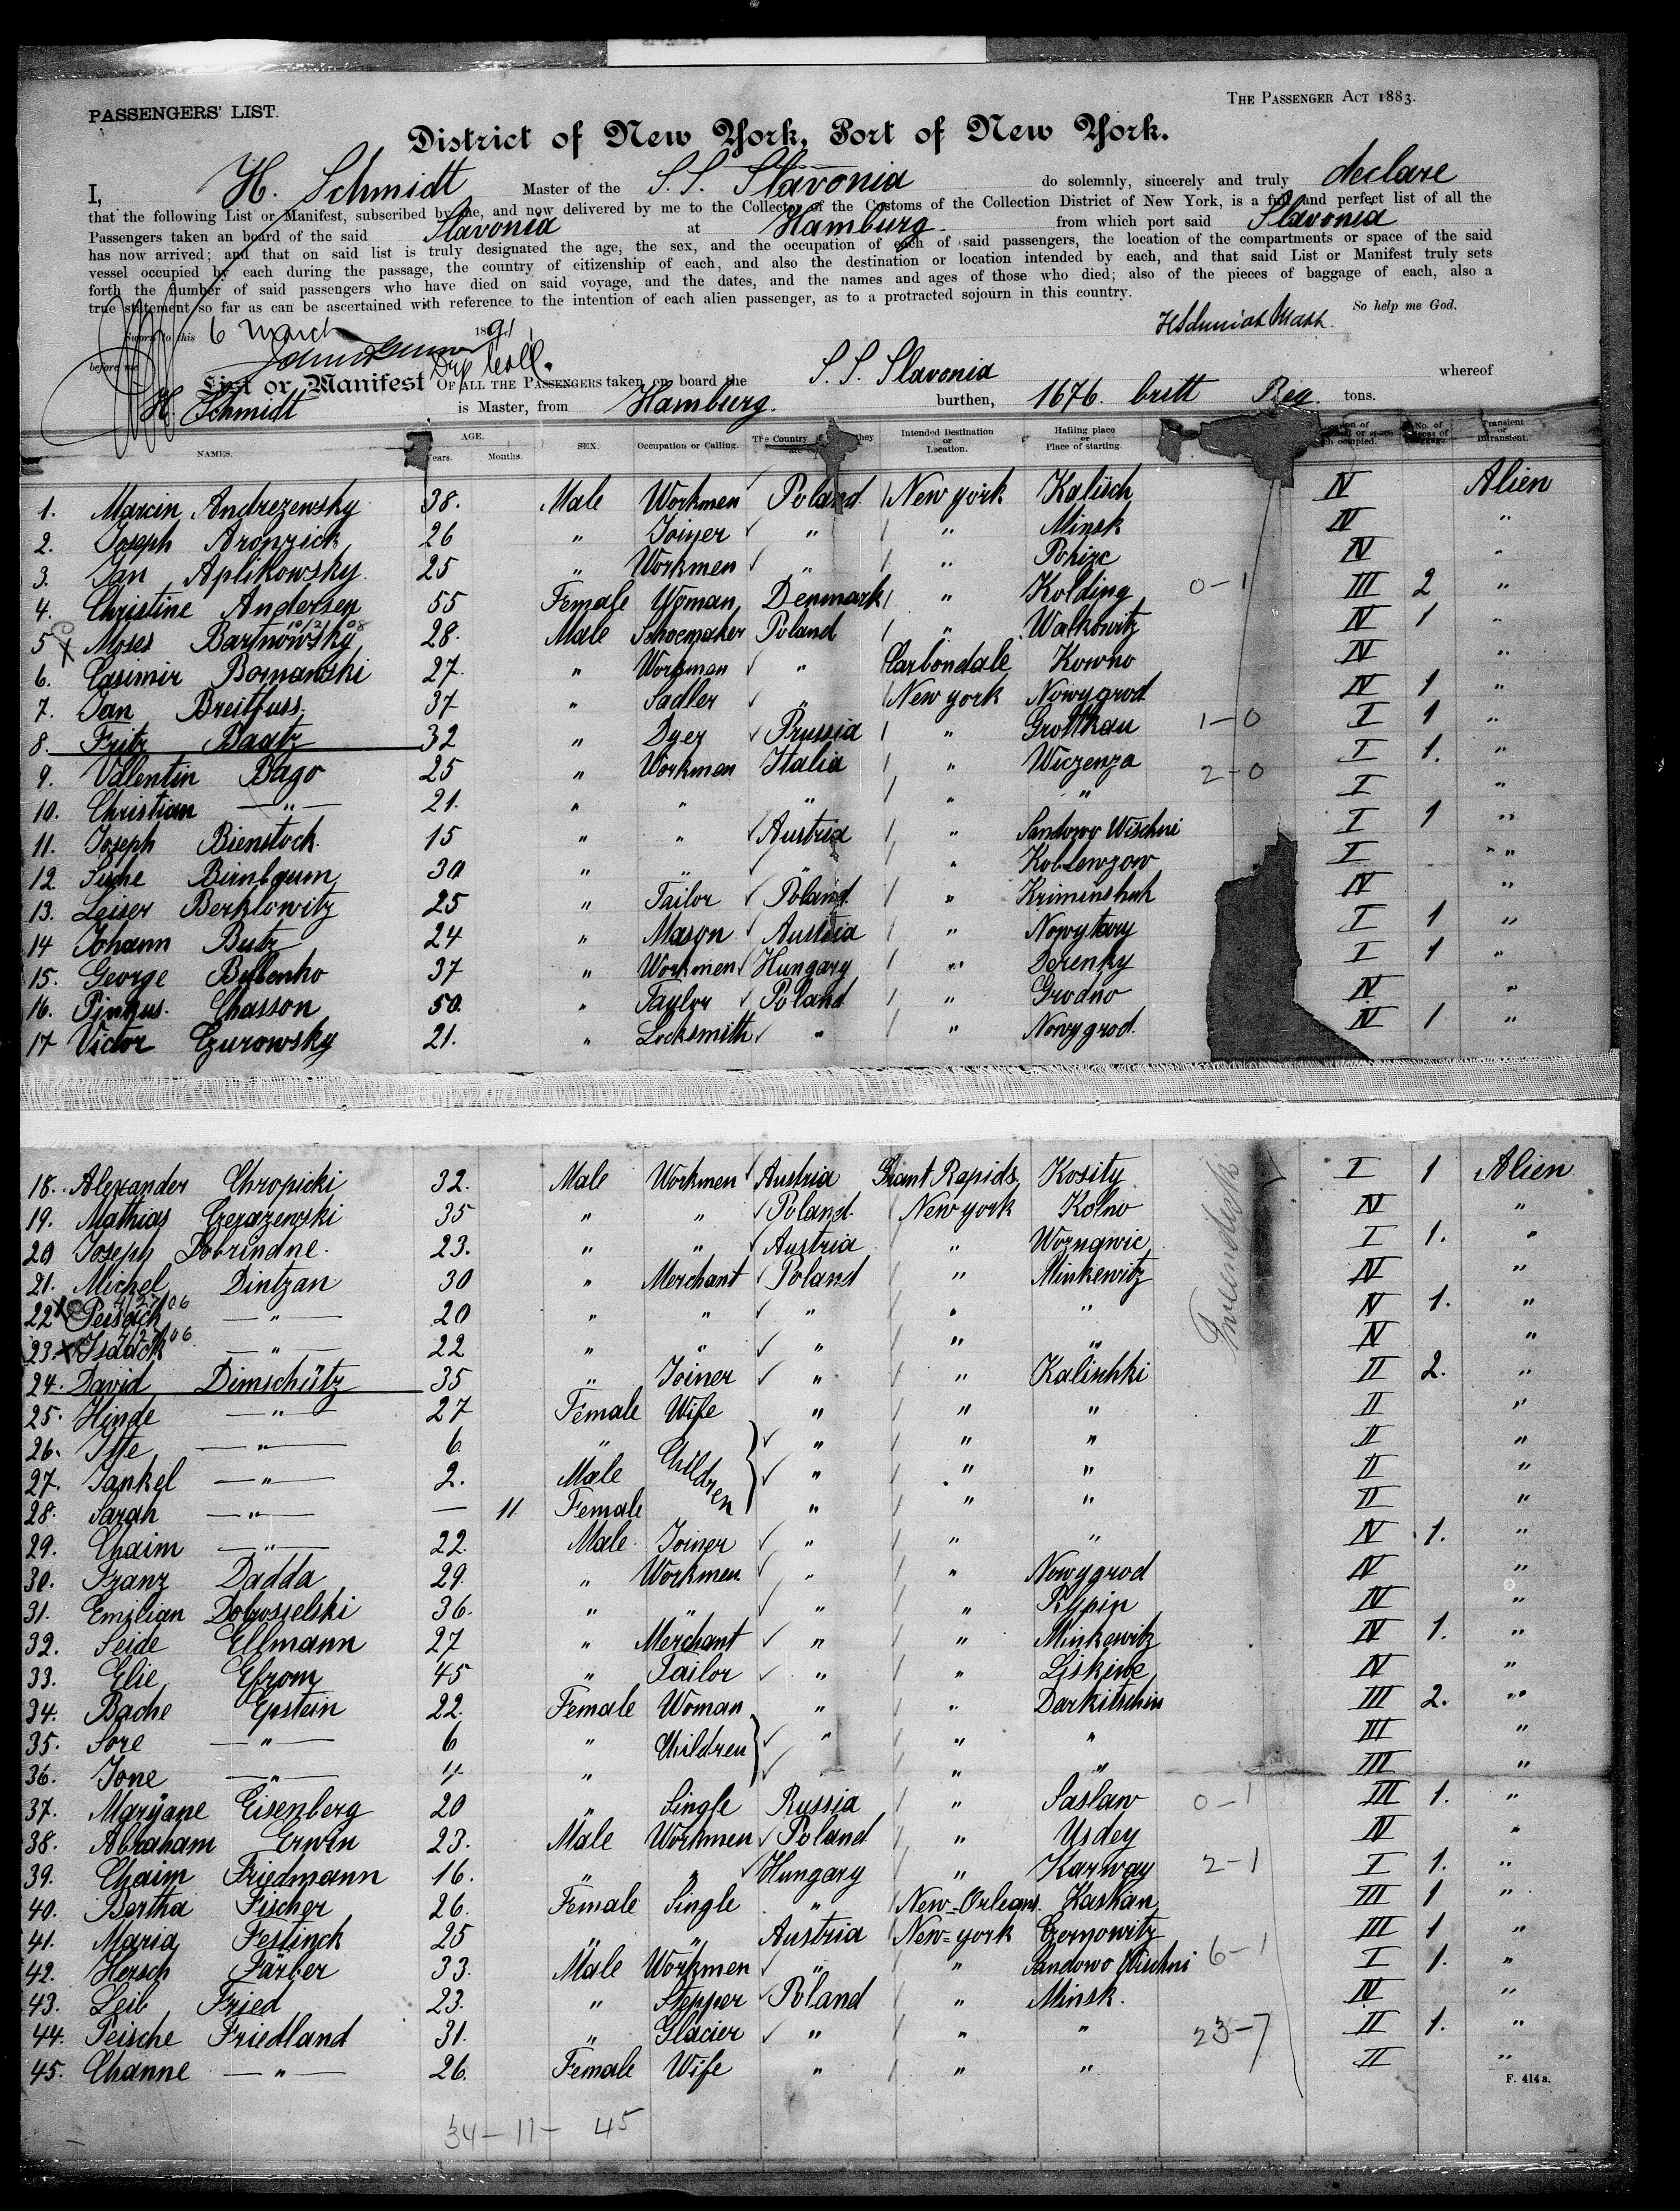 PASSENGERS' LIST.
THE PASSENGER ACT 1883.
District of New York, Port of New York.
I, H. Schmidt Master of the S.S. Slavonia do solemnly, sincerely and truly declare
that the following List or Manifest, subscribed by me, and now delivered by me to the Collector of the Customs of the Collection District of New York, is a full and perfect list of all the
Passengers taken an board of the said Slavonia at Hamburg. from which port said Slavonia
has now arrived; and that on said list is truly designated the age, the sex, and the occupation of each of said passengers, the location of the compartments or space of the said
vessel occupied by each during the passage, the country of citizenship of each, and also the destination or location intended by each, and that said List or Manifest truly sets
forth the number of said passengers who have died on said voyage, and the dates, and the names and ages of those who died; also of the pieces of baggage of each, also a
true statement so far as can be ascertained with reference to the intention of each alien passenger, as to a protracted sojourn in this country.
So help me God.
Sworn to this 6 March 1891
before me
Dep Coll.
List or Manifest OF ALL THE PASSENGERS taken on board the S.S. Slavonia whereof
H. Schmidt is Master, from Hamburg. burthen, 1676. britt Reg. tons.
NAMES. AGE. Years. Months. SEX. Occupation or Calling. The Country they are Intended Destination or Location. Hailing place or Place of starting. No. of Transient or Intransient.
1. Marcin Andrezewsky 38. Male Workmen Poland New york Kalisch IV Alien
2. Joseph Aronzick 26 " Joiner " " Minsk IV "
3. Jan Aplikowsky. 25 " Workmen " " IV "
4. Christine Andersen 55 Female Woman Denmark " Kolding 0-1 III 2 "
5 Moses Bartnowsky 28. Male Schoemaker Poland " Walkowitz IV 1 "
6. Casimir Bomanski 27. " Workmen " Carbondale Kowno IV "
7. Jan Breitfuss. 37 " Sadler " New york Nowygrod IV 1 "
8. Fritz Baatz 32 " Dyer Prussia " Grottkau 1-0 I 1 "
9. Vallentin Bago 25 " Workmen Italia " Wiczenza 2-0 I 1. "
10. Christian " 21. " " " " " I "
11. Joseph Bienstock. 15 " " Austria " Sandowo Wischni I 1 "
12. Suche Birnbaum 30 " " " " Koblewzow I "
13. Leiser Berklowitz 25 " Tailor Poland " Kriminshuk IV "
14 Johann Butz 24 " Mason Austria " Nowytary I 1 "
15. George Bullenko 37 " Workmen Hungary " Derenky I 1 "
16. Pinkus. Chasson 50. " Taylor Poland " Grodno IV "
17 Victor Czurowsky 21. " Locksmith " " Nowygrod. IV 1 "
18. Alexander Chropicki 32. Male Workmen Austria Grant Rapids, Kosity I 1 Alien
19. Mathias Czerazewski 35 " " Poland. New york Kolno IV "
20 Joseph Dobrindne. 23. " " Austria " Worngwic I 1. "
21. Michel Dintzan 30 " Merchant Poland " Minkewitz IV "
22 Peisach " 20 " " " " " IV 1. "
23. Isaack " 22 " " " " " IV "
24. David Dimschütz 35 " Joiner " " Kalischki II 2. "
25. Hinde " 27 Female Wife " " " II "
26. Itte " 6. " Children " " " II "
27. Jankel " 2. Male " " " II "
28. Sarah " — 11. Female " " " II "
29. Chaim " 22. Male Joiner " " " IV 1. "
30. Franz Dadda 29. " Workmen " " Nowygrod IV "
31. Emilian Dobroszelski 36. " " " " Rypin IV "
32. Seide Ellmann 27 " Merchant " " Minkewitz IV 1. "
33. Elie Efrom 45 " Tailor " " Liskine IV "
34. Bache Epstein 22. Female Woman " " Darkitschin III 2. "
35. Sore " 6 " Children " " " III "
36. Jone " 4 " " " " III "
37. Maryane Eisenberg 20 " Single Russia " Saslaw 0-1 III 1. "
38. Abraham Erwin 23. Male Workmen Poland " Usdey IV "
39. Chaim Friedmann 16. " " Hungary " Karway 2-1 I 1. "
40. Bertha Fischer 26. Female Single " New-Orleans. Kashan III 1 "
41. Maria Festinck 25 " " Austria New-york Czernowitz III 1 "
42. Hersch Färber 33. Male Workmen " " Sandowo Wischni 6-1 I 1. "
43. Leib Fried 23. " Stepper Poland " Minsk. IV "
44. Peische Friedland 31. " Glacier " " " 23-7 II 1. "
45. Channe " 26. Female Wife " " " II "
F. 414a.
34-11- 45